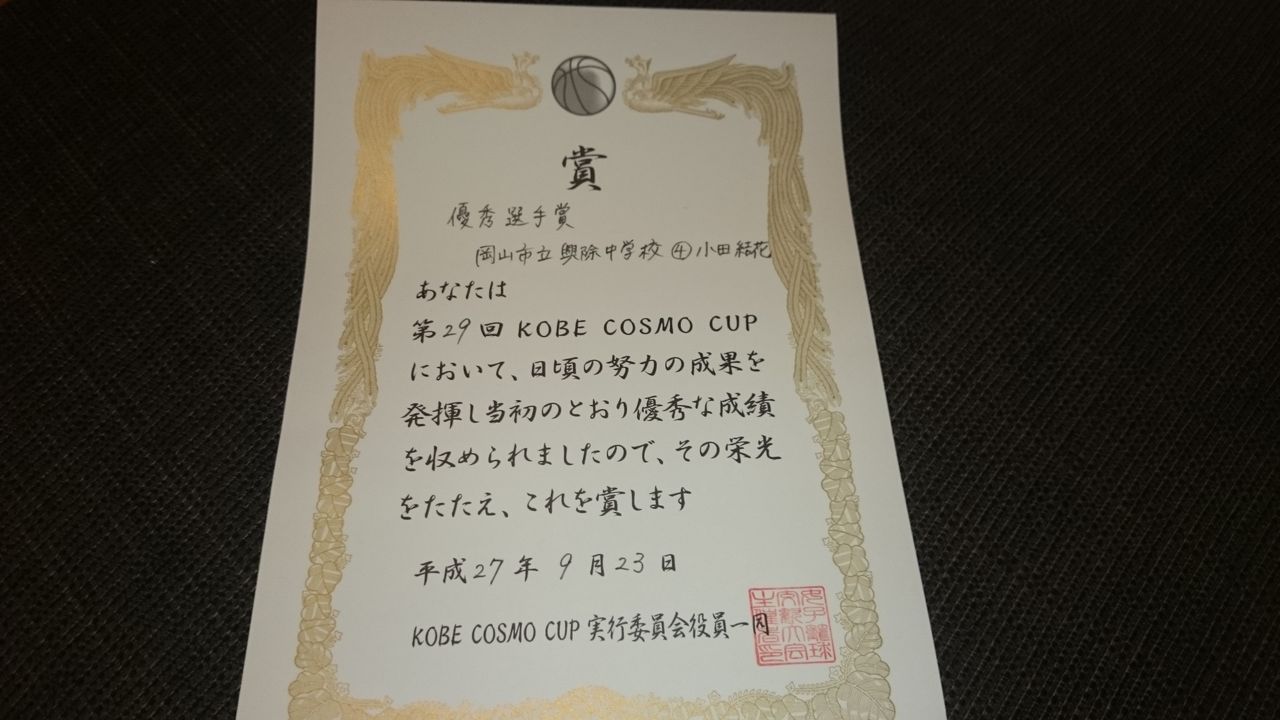 賞
優秀選手賞
岡山市立興除中学校 ④ 小田結花
あなたは
第29回 KOBE COSMO CUP
において、日頃の努力の成果を
発揮し当初のとおり優秀な成績
を収められましたので、その栄光
をたたえ、これを賞します
平成27年 9月23日
KOBE COSMO CUP 実行委員会役員一同